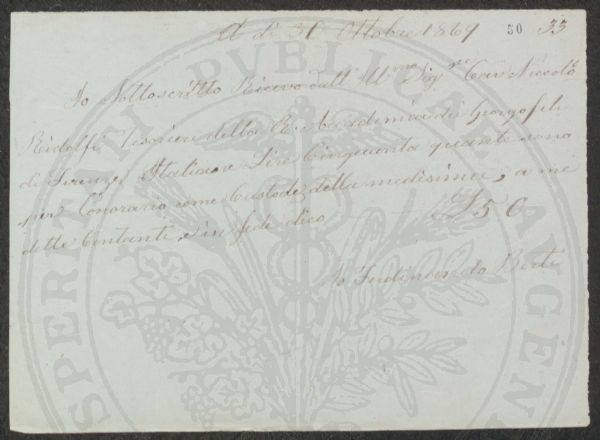 A dì 31 Ottobre 1869 50 33
Io Sottoscritto Ricevo dall' Ill.mo Sig.re Cav Niccolò
Ridolfi Tesoriere della R. Accademia dei Georgofili
di Firenze Italiane Lire Cinquanta quante sono
per Onorario come Custode della medesima, a me
dette Contante, in fede dico L 50
Io Ferdinando Berti
PROSPERITATI PUBLICAE AUGENDAE